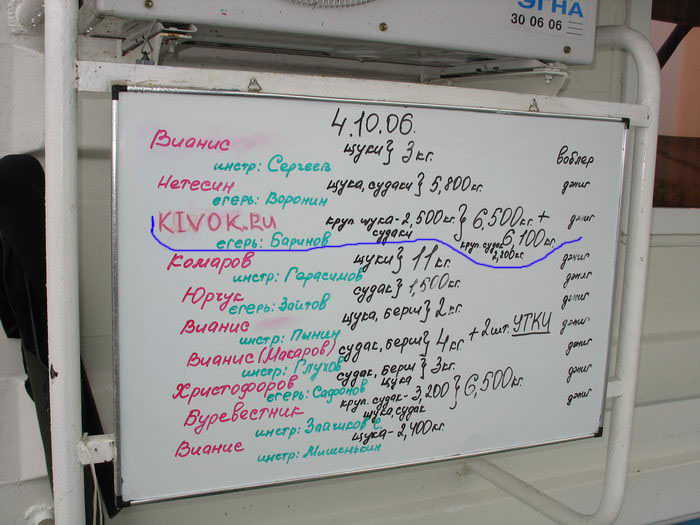 ЭГНА
30 06 06
4.10.06.
Вианис щуки} 3 кг. воблер
инстр: Сергеев
Нетесин щука, судаки} 5,800 кг. джиг
егерь: Воронин
KIVOK.RU круп. щука-2,500 кг. судаки} 6,500 кг. + джиг
егерь: Баринов круп. судак 2,200 кг. 6,100 кг.
Комаров щуки} 11 кг. джиг
инстр: Герасимов
Юрчук судак} 1,500 кг. джиг
егерь: Заитов
Вианис щука, берш} 2 кг. джиг
инстр: Пынин
Вианис (Макаров) судак, берш} 4 кг. + 2 шт. УТКИ джиг
инстр: Глухов
Христофоров судак, берш щука} 3 кг. джиг
егерь: Сафонов
Буревестник круп. судак-3,200 щука, судак} 6,500 кг. джиг
инстр: Заашков С.
Вианис щука-2,400 кг.
инстр: Мишенькин